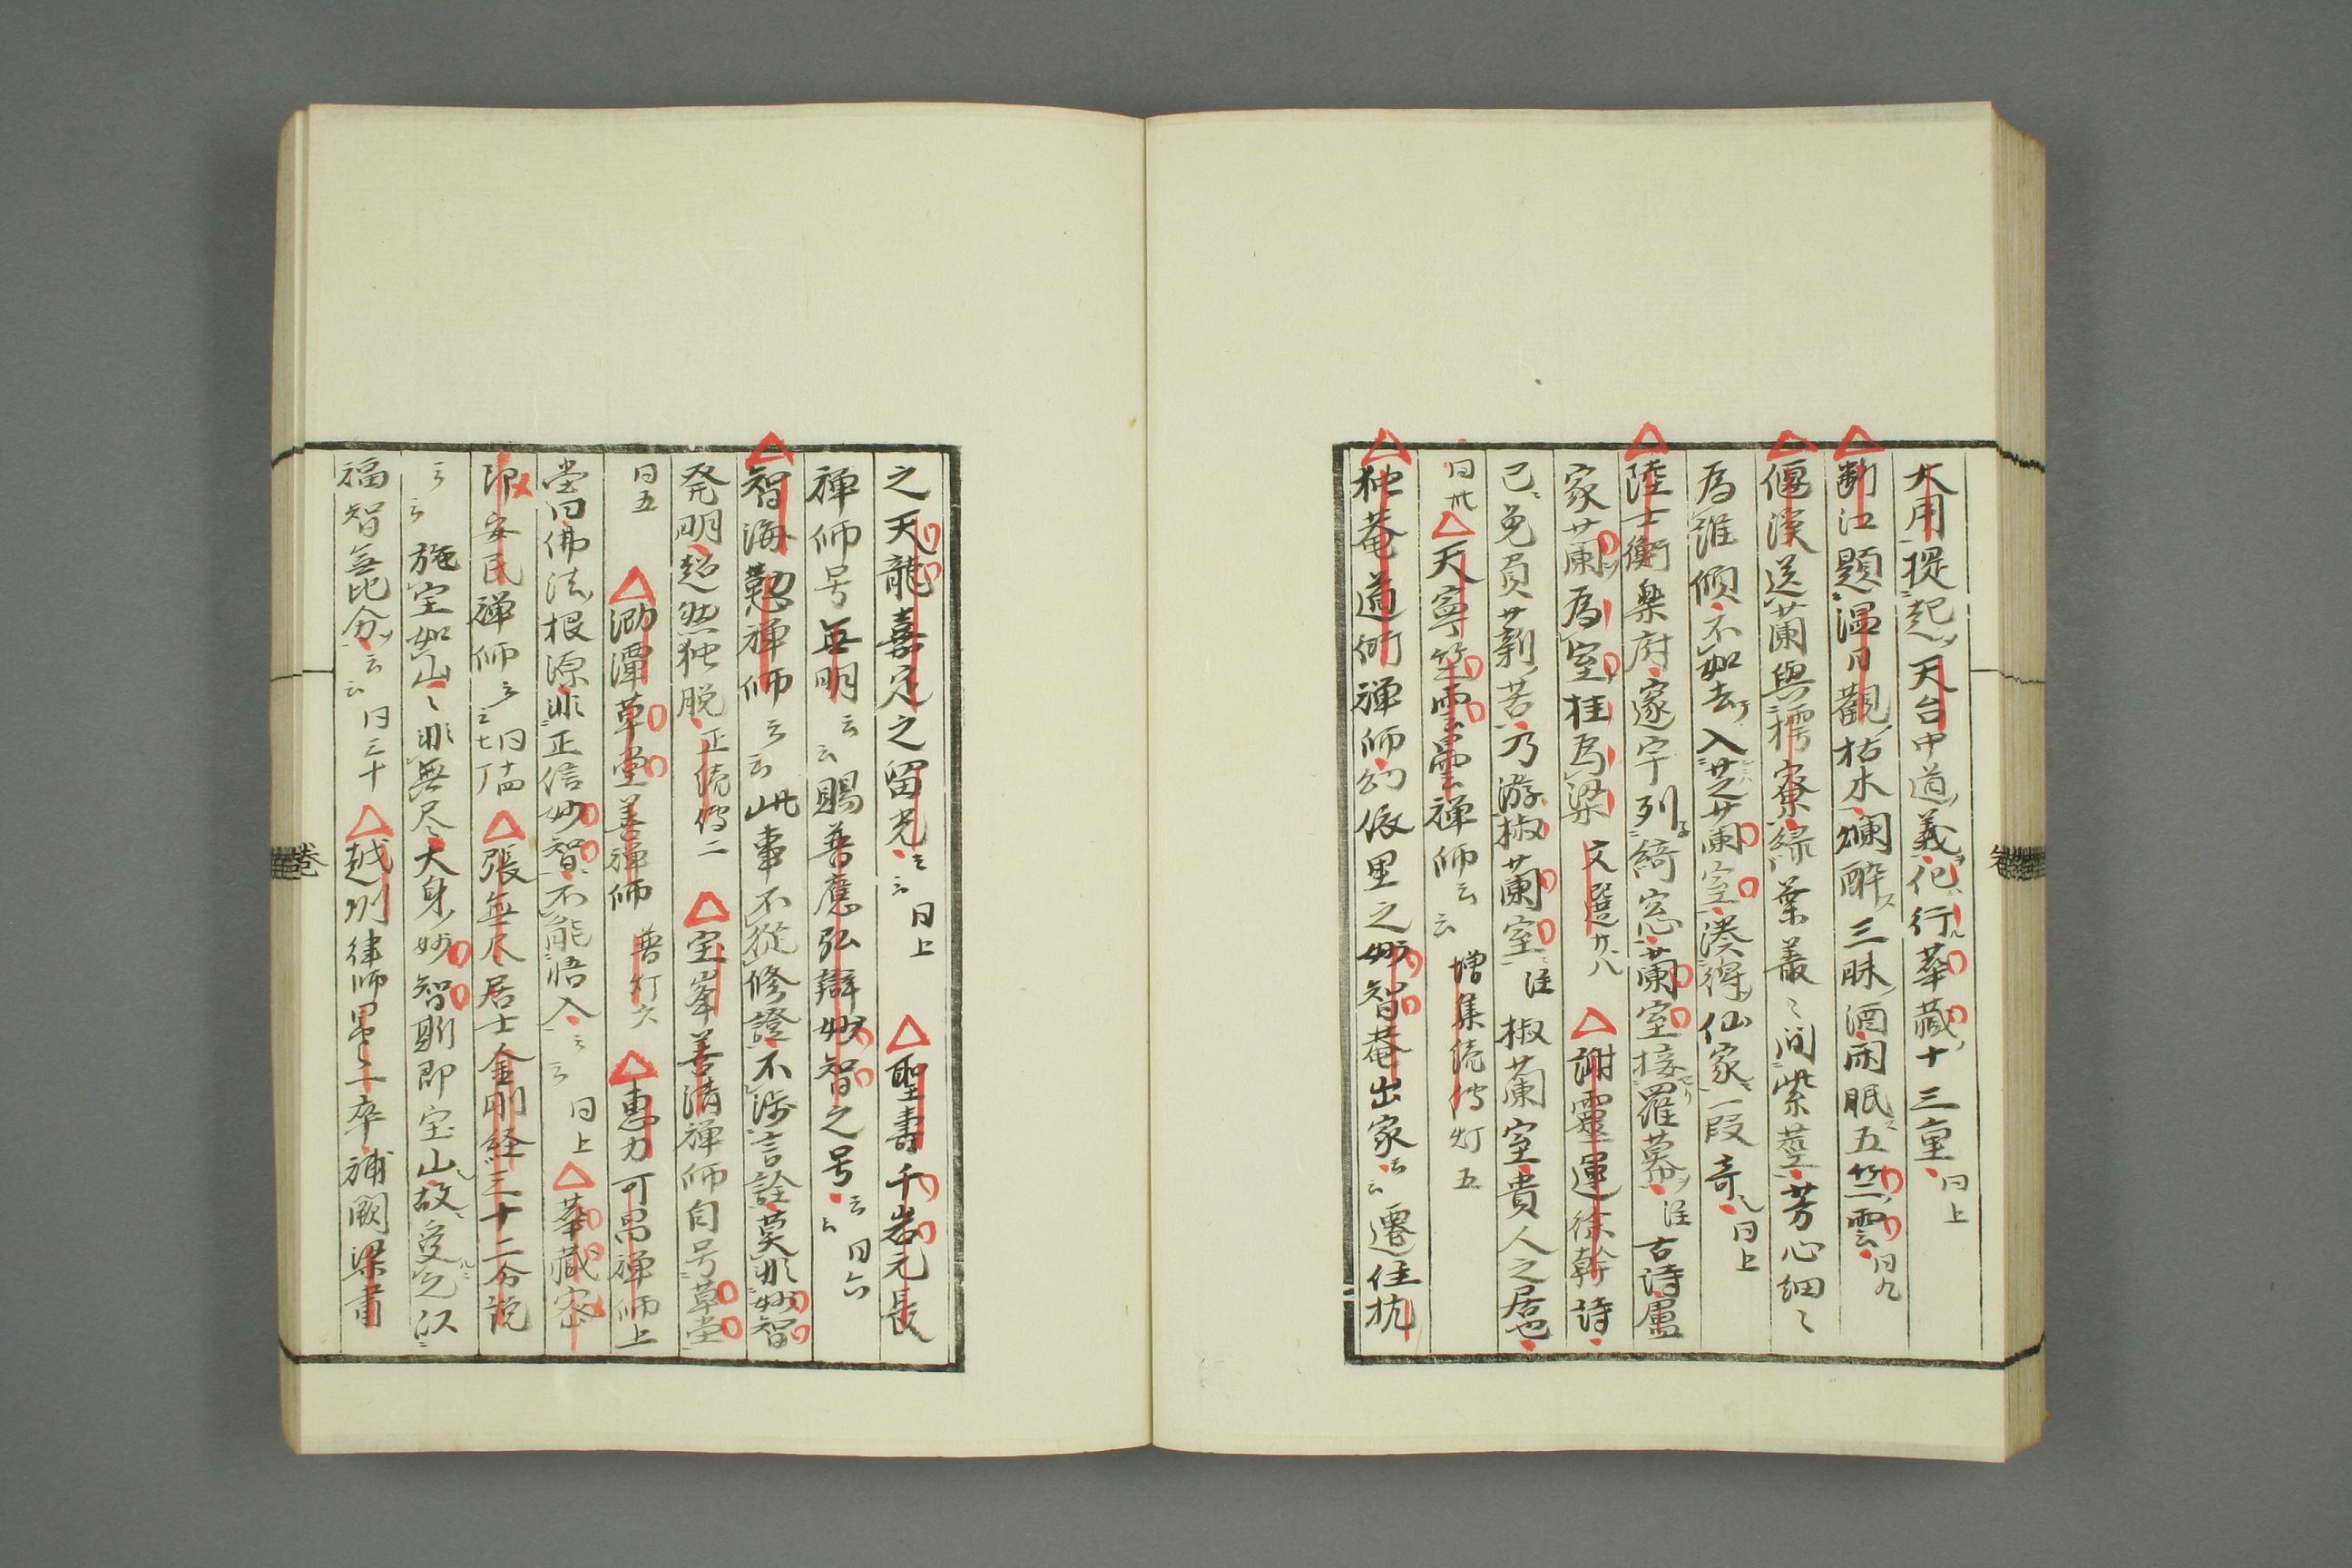 大用提起天台中道義祀行華藏十三重曰上
断江題温日觀枯木爛酔三昧酒困眠五竺雲曰九
偃溪送蘭與樗寮緑葉叢〻間紫莖芳心細〻
為誰傾不如去入芝蘭室湊得仙家一段奇曰上
陸士衡楽府邃宇列綺窓蘭室接羅幕注古詩盧
家蘭為室桂為梁文選廿八謝靈運徐幹詩
已免負薪苦乃游椒蘭室注椒蘭室貴人之居也
曰卅天寧竺雲曇禅師云云増集続伝灯五
独菴道衍禅師幼依里之妙智菴出家云云遷住杭
之天龍嘉定之留光云云曰上聖壽千岩元長
禅師号無明云云賜普應弘辯妙智之号云云曰六
智海懃禅師云云此事不從修證不渉言詮莫非妙智
発明超然独脱正続伝二宝峯善清禅師自号草堂
曰五泐潭草堂善禅師普灯六惠力可昌禅師上
堂曰佛法根源非正信妙智不能悟入云云曰上華藏密
印安民禅師云云曰十四七丁張無尽居士金剛経三十二分説
云云施宝如山〻非無尽大身妙智斯即宝山故受之以
福智無比分云云曰三十越州律師曇一卒補闕梁肅
卷